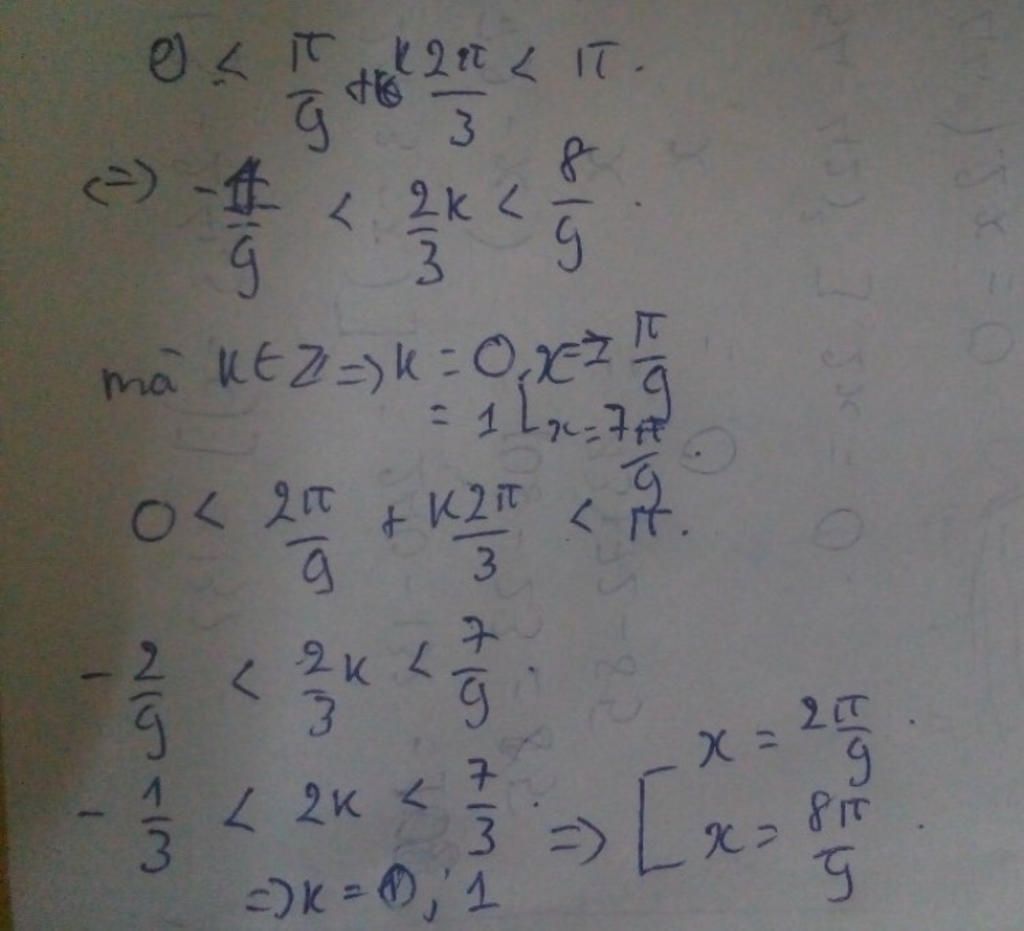 0 < π/9 + k2π/3 < π.
<=> -1/9 < 2/3 k < 8/9.
mà k ∈ Z => k = 0, x = π/9
= 1 [ x = 7π/9.
0 < 2π/9 + k2π/3 < π.
- 2/9 < 2/3 k < 7/9.
- 1/3 < 2k < 7/3. => [ x = 2π/9.
x = 8π/9.
=> k = 0; 1